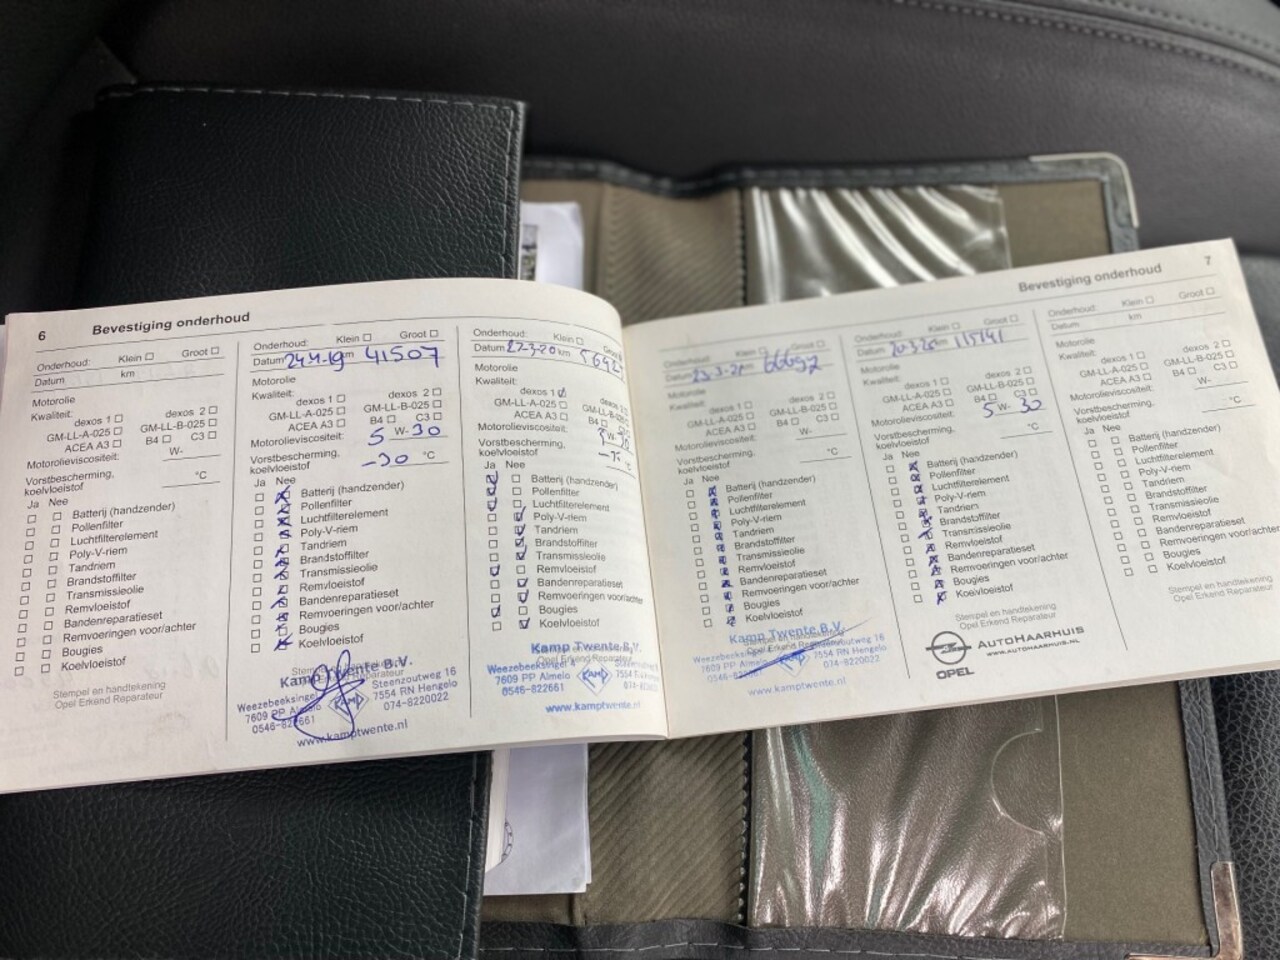 6 Bevestiging onderhoud
Onderhoud: Klein Groot
Datum km
Motorolie
Kwaliteit:
dexos 1 dexos 2
GM-LL-A-025 GM-LL-B-025
ACEA A3 B4 C3
Motorolieviscositeit: W-
Vorstbescherming, koelvloeistof °C
Ja Nee
Batterij (handzender)
Pollenfilter
Luchtfilterelement
Poly-V-riem
Tandriem
Brandstoffilter
Transmissieolie
Remvloeistof
Bandenreparatieset
Remvoeringen voor/achter
Bougies
Koelvloeistof
Stempel en handtekening
Opel Erkend Reparateur
Onderhoud: Klein Groot
Datum km 41507
Motorolie
Kwaliteit:
dexos 1 dexos 2
GM-LL-A-025 GM-LL-B-025
ACEA A3 B4 C3
Motorolieviscositeit: 5 W- 30
Vorstbescherming, koelvloeistof -30 °C
Ja Nee
Batterij (handzender)
Pollenfilter
Luchtfilterelement
Poly-V-riem
Tandriem
Brandstoffilter
Transmissieolie
Remvloeistof
Bandenreparatieset
Remvoeringen voor/achter
Bougies
Koelvloeistof
Stempel en handtekening
Opel Erkend Reparateur
Kamp Twente B.V.
Weezebeeksingel
7609 PP Almelo
0546-822661
KAMP
Steenzoutweg 16
7554 RN Hengelo
074-8220022
www.kamptwente.nl
Onderhoud: Klein Groot
Datum 22-3-20 km
Motorolie
Kwaliteit:
dexos 1 dexos 2
GM-LL-A-025 GM-LL-B-025
ACEA A3 B4
Motorolieviscositeit:
Vorstbescherming, koelvloeistof °C
Ja Nee
Batterij (handzender)
Pollenfilter
Luchtfilterelement
Poly-V-riem
Tandriem
Brandstoffilter
Transmissieolie
Remvloeistof
Bandenreparatieset
Remvoeringen voor/achter
Bougies
Koelvloeistof
Stempel en handtekening
Opel Erkend Reparateur
Kamp Twente B.V.
Weezebeeksingel 4
7609 PP Almelo
0546-822661
KAMP
www.kamptwente.nl
Bevestiging onderhoud 7
Onderhoud: Klein Groot
Datum km 66692
Motorolie
Kwaliteit:
dexos 1 dexos 2
GM-LL-A-025 GM-LL-B-025
ACEA A3 B4 C3
Motorolieviscositeit: W-
Vorstbescherming, koelvloeistof °C
Ja Nee
Batterij (handzender)
Pollenfilter
Luchtfilterelement
Poly-V-riem
Tandriem
Brandstoffilter
Transmissieolie
Remvloeistof
Bandenreparatieset
Remvoeringen voor/achter
Bougies
Koelvloeistof
Kamp Twente B.V.
Weezebeeksingel 4
7609 PP Almelo
0546-822661
7554 RN Hengelo
074-8220022
www.kamptwente.nl
Onderhoud: Klein Groot
Datum km 115141
Motorolie
Kwaliteit:
dexos 1 dexos 2
GM-LL-A-025 GM-LL-B-025
ACEA A3 B4 C3
Motorolieviscositeit: 5 W- 30
Vorstbescherming, koelvloeistof °C
Ja Nee
Batterij (handzender)
Pollenfilter
Luchtfilterelement
Poly-V-riem
Tandriem
Brandstoffilter
Transmissieolie
Remvloeistof
Bandenreparatieset
Remvoeringen voor/achter
Bougies
Koelvloeistof
Stempel en handtekening
Opel Erkend Reparateur
OPEL
AUTOHAARHUIS
WWW.AUTOHAARHUIS.NL
Onderhoud: Klein Groot
Datum km
Motorolie
Kwaliteit:
dexos 1 dexos 2
GM-LL-A-025 GM-LL-B-025
ACEA A3 B4 C3
Motorolieviscositeit: W-
Vorstbescherming, koelvloeistof °C
Ja Nee
Batterij (handzender)
Pollenfilter
Luchtfilterelement
Poly-V-riem
Tandriem
Brandstoffilter
Transmissieolie
Remvloeistof
Bandenreparatieset
Remvoeringen voor/achter
Bougies
Koelvloeistof
Stempel en handtekening
Opel Erkend Reparateur